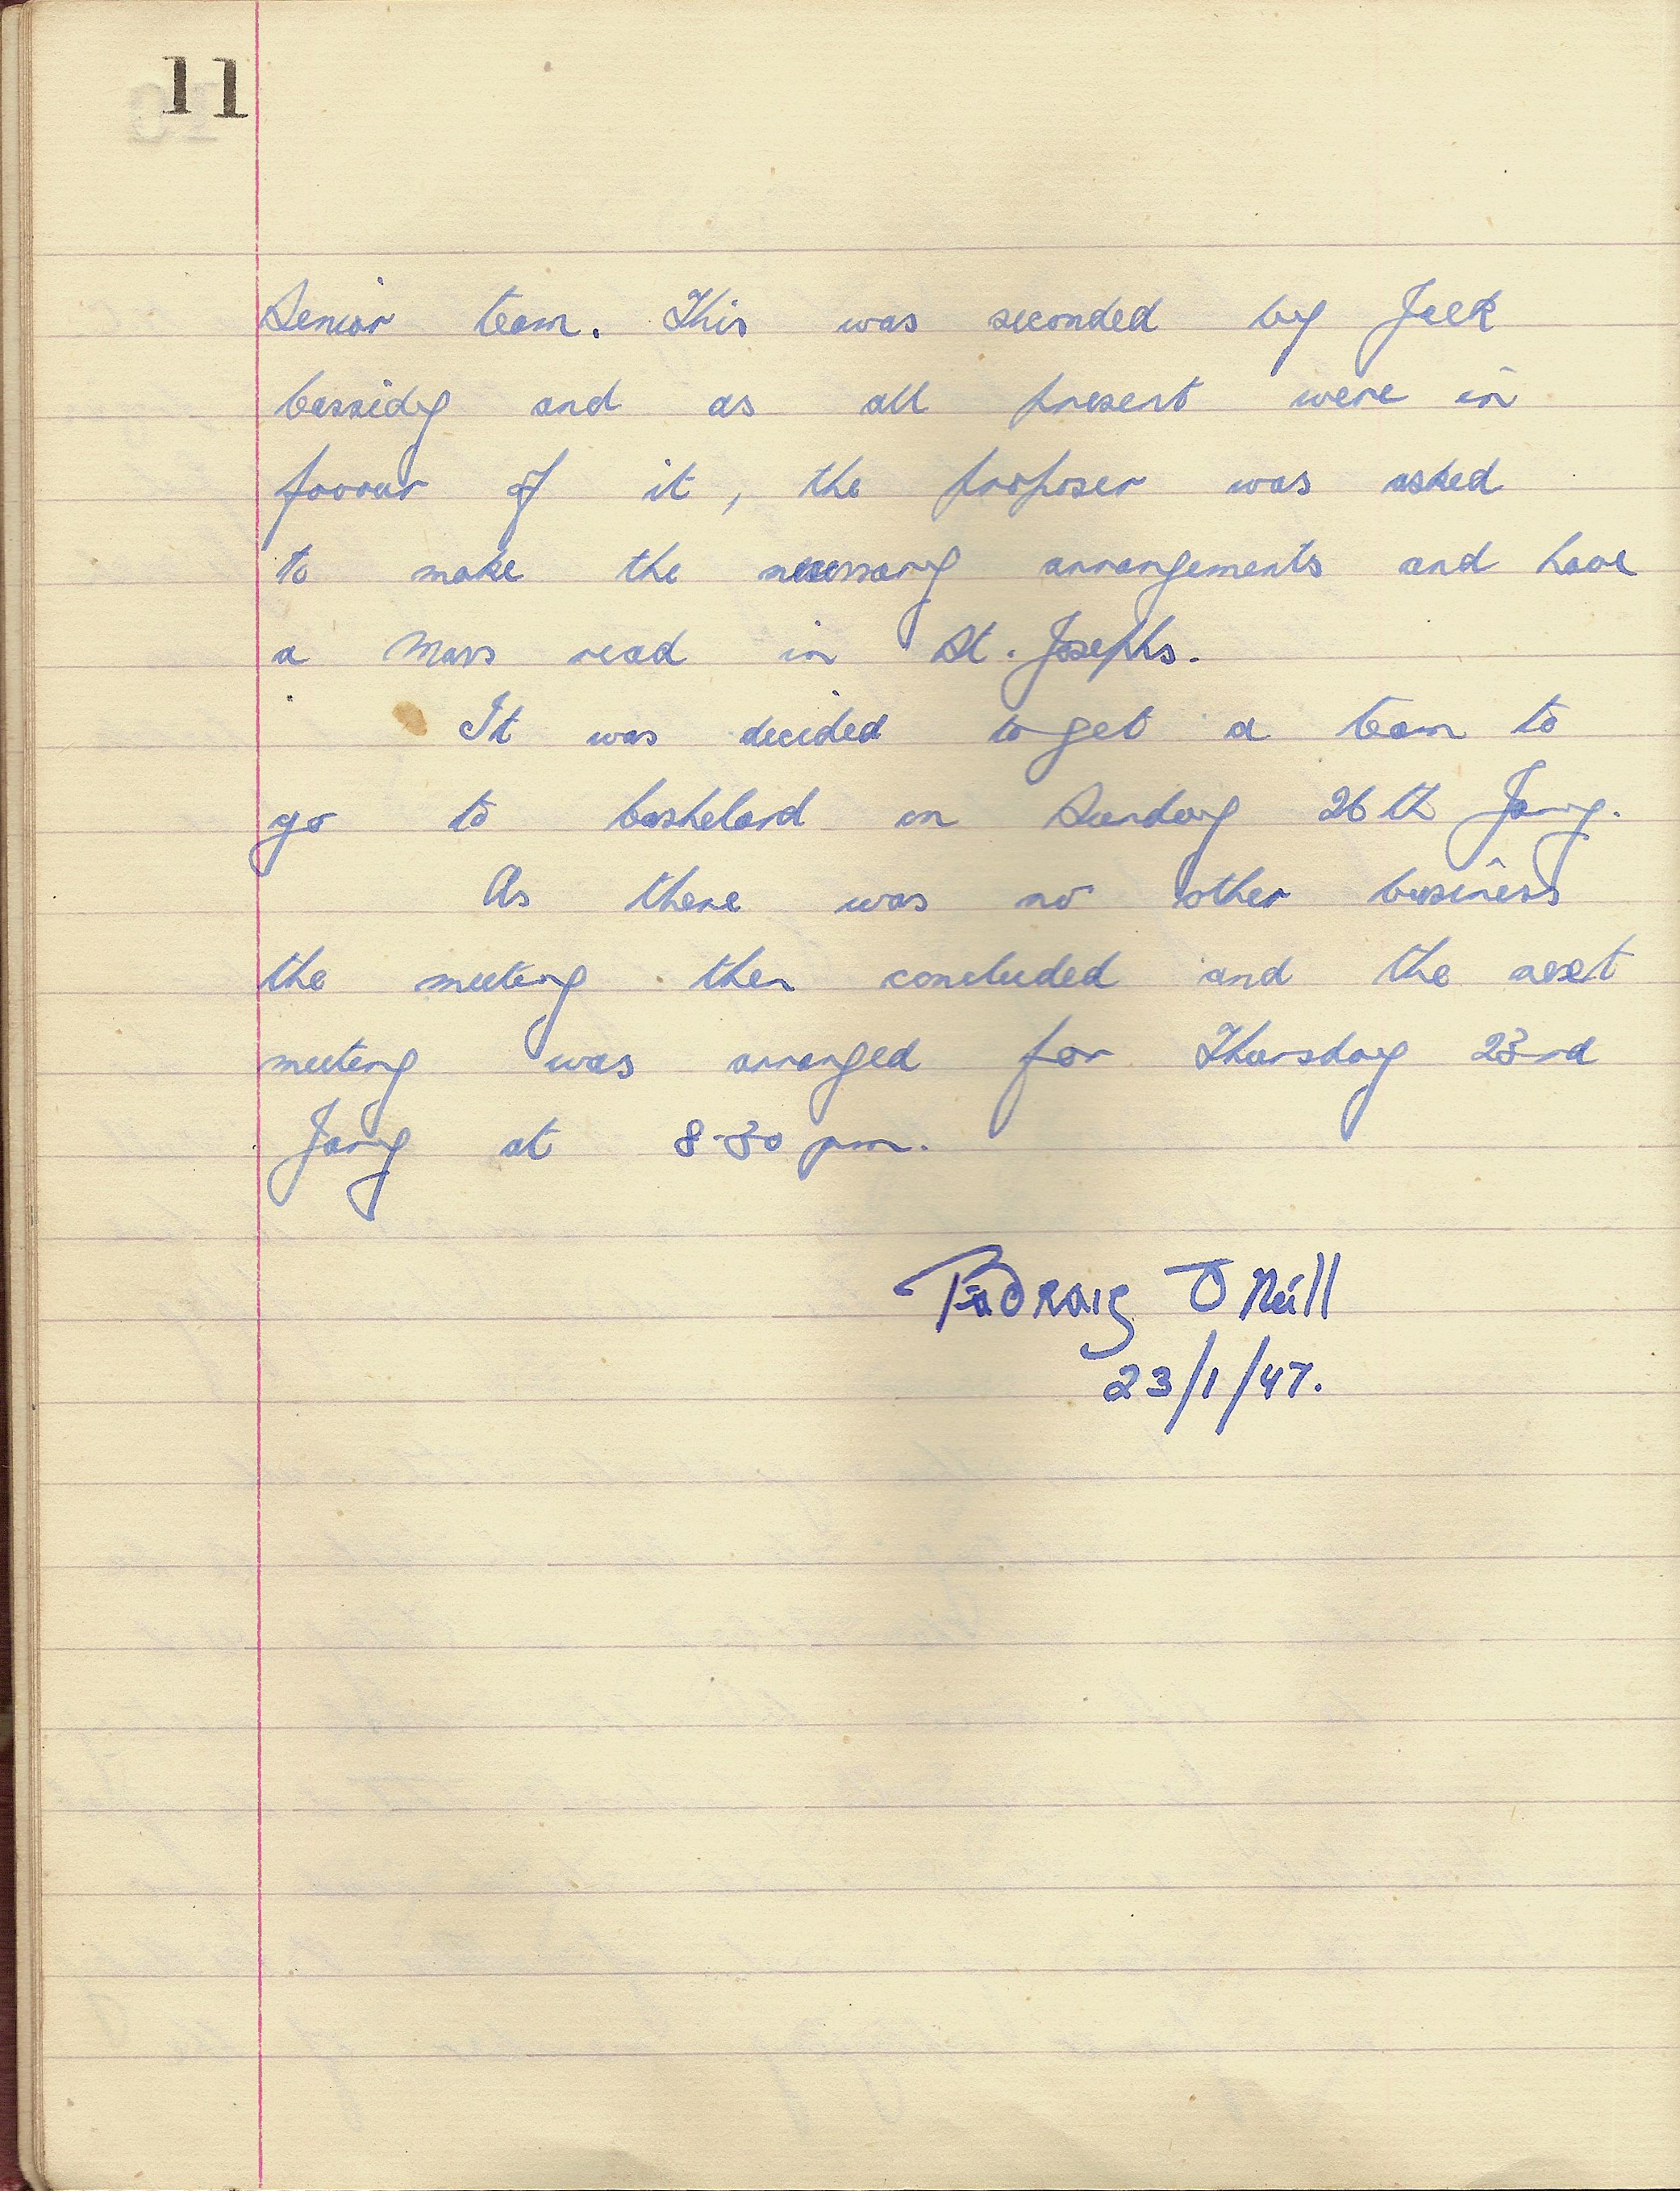 11
Senior team. This was seconded by Jack
Cassidy and as all present were in
favour of it, the proposer was asked
to make the necessary arrangements and have
a Mass read in St. Josephs.
It was decided to get a team to
go to Cashelard on Sunday 26th Jany.
As there was no other business
the meeting then concluded and the next
meeting was arranged for Thursday 23rd
Jany at 8.30 pm.
Pádraig Ó Néill
23/1/47.